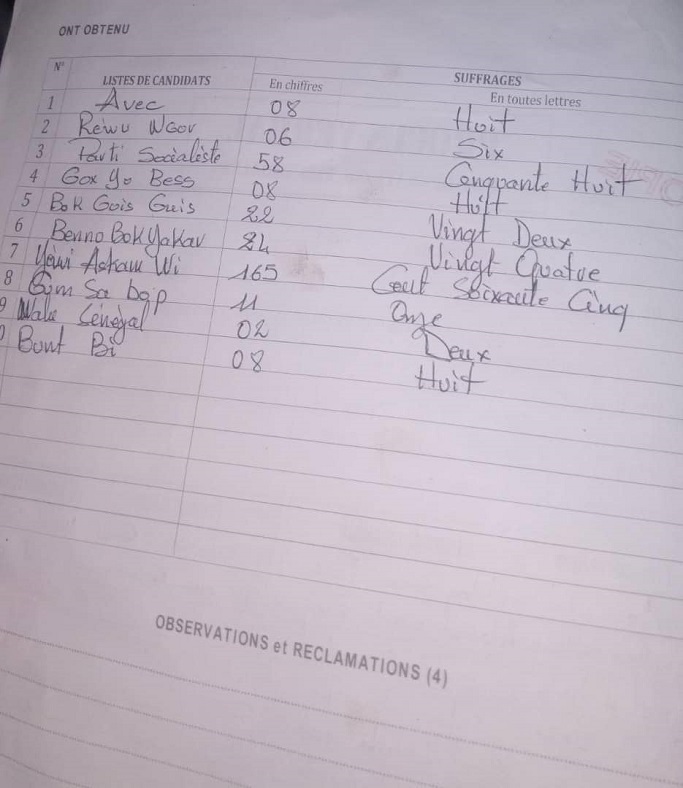 ONT OBTENU
N° LISTES DE CANDIDATS SUFFRAGES
En chiffres En toutes lettres
1 Avec 08 Huit
2 Réwu Ngor 06 Six
3 Parti Socialiste 58 Cinquante Huit
4 Gox Yu Bess 08 Huit
5 Bok Gois Guis 22 Vingt Deux
6 Benno Bok Yakar 24 Vingt Quatre
7 Yewi Askan Wi 165 Cent Soixante Cinq
8 Gëm Sa bop 11 Onze
9 Wallu Sénégal 02 Deux
0 Bunt Bi 08 Huit
OBSERVATIONS et RECLAMATIONS (4)